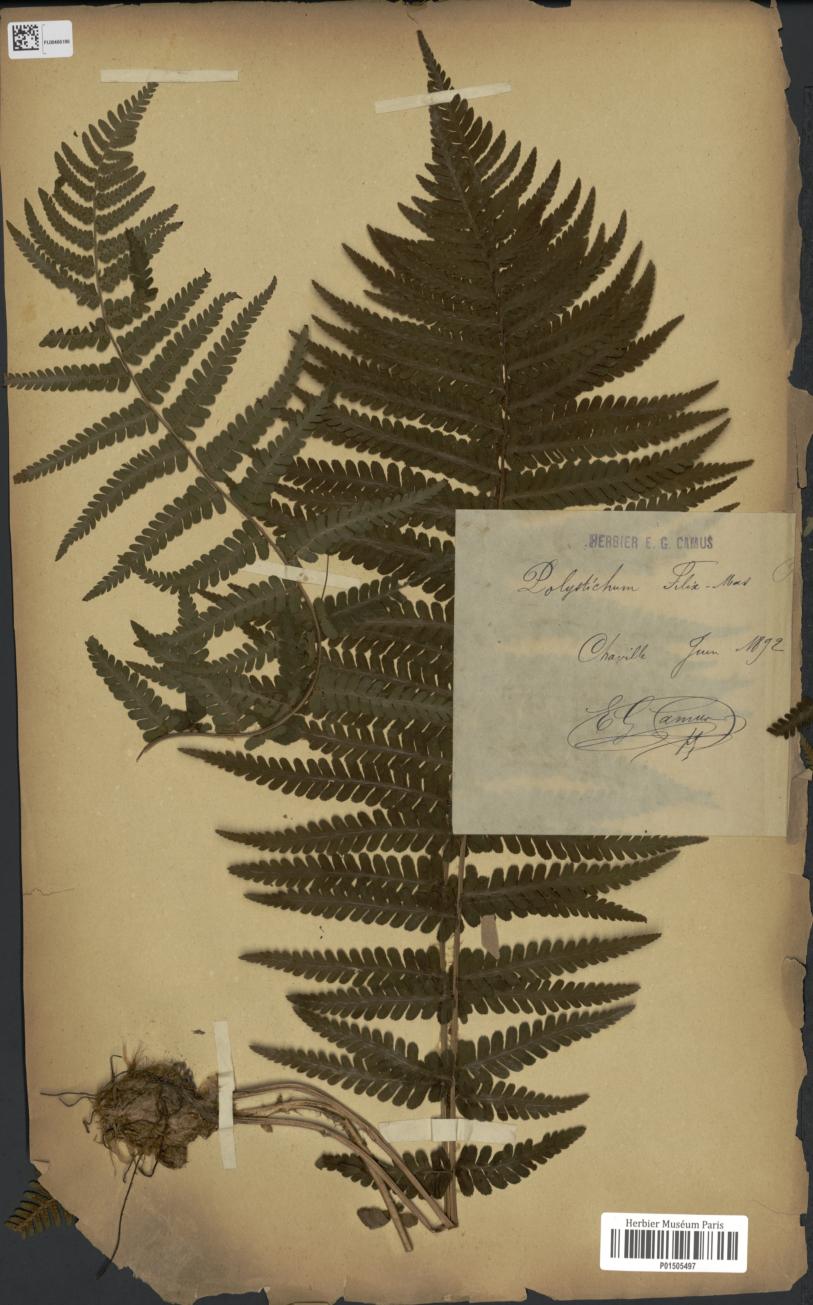 HERBIER E. G. CAMUS
Polystichum Filix-Mas
Chaville Juin 1892
E G Camus
Herbier Muséum Paris
P01505497